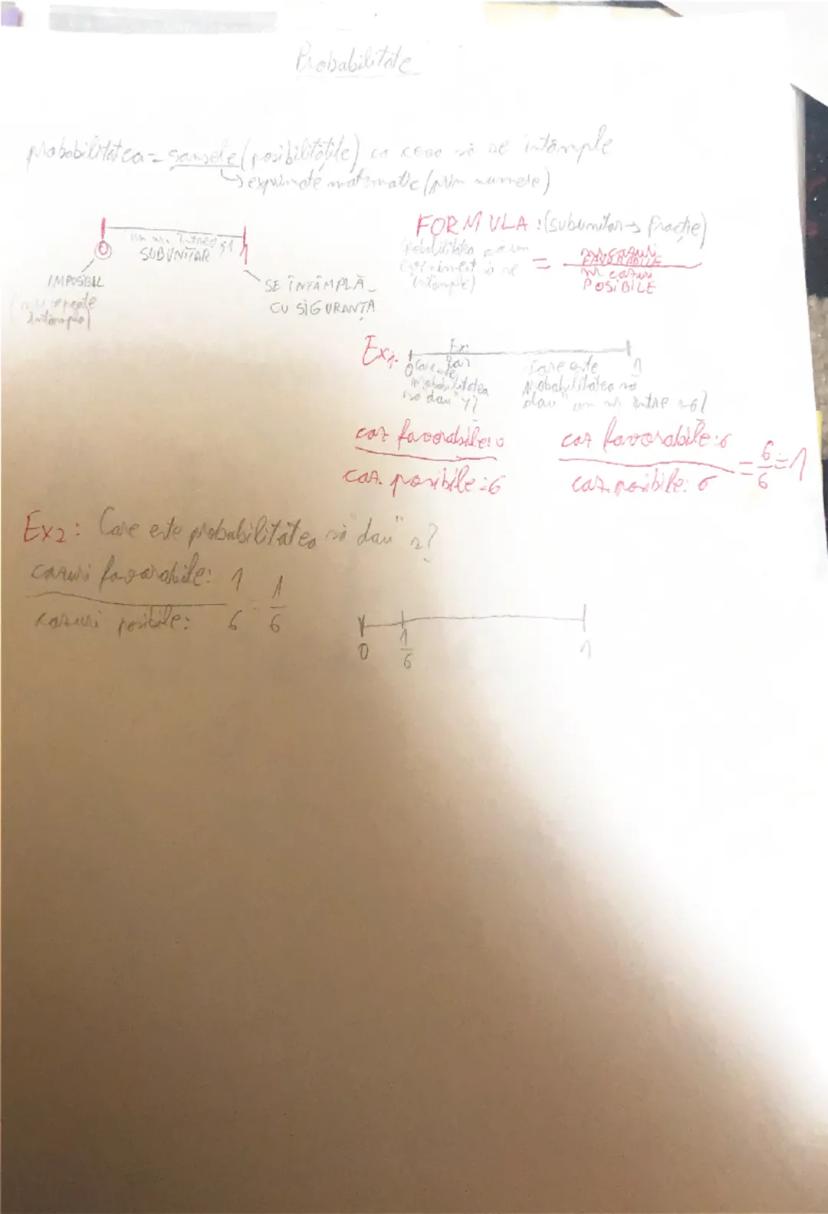 Probabilitate
probabilitatea = șansele (posibilitățile) ca ceva să se întâmple
↳ exprimate matematic (prin numere)
SUBUNITAR
0
1
IMPOSIBIL
SE ÎNTÂMPLĂ
CU SIGURANȚA
FORMULA: (subunitar → fracție)
= nr. cazuri FAVORABILE
nr cazuri
POSIBILE
Ex1:
Ex:
0
1
Care este
probabilitatea
să dau "7?
Care este
probabilitatea să
dau" un nr între 1-6?
caz favorabile: 0
caz. posibile: 6
caz favorabile: 6
caz. posibile: 6
= 6/6 = 1
Ex2: Care este probabilitatea să "dau" 2?
cazuri favorabile: 1
cazuri posibile: 6
1/6
0 1/6 1